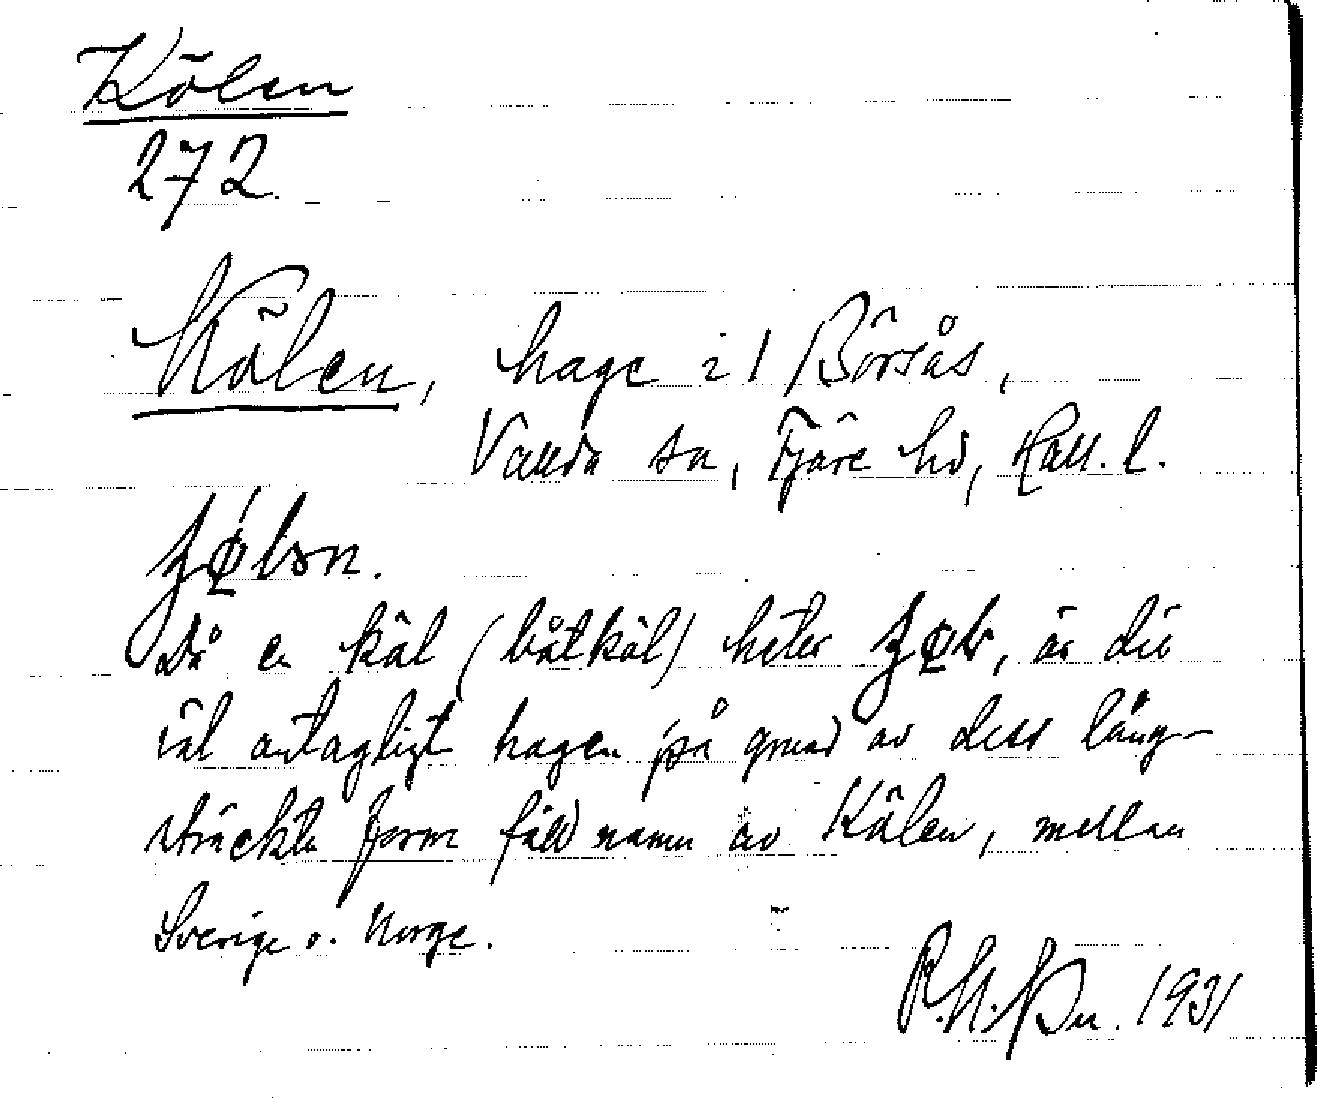 Kölen
272.
Kölen, hage i 1 Börsås,
Vallda sn, Fjäre hd, Hall. l.
Då en köl (båtköl) heter är
väl antagligt hagen på grund av dess lång-
sträckta form fått namn av Kölen, mellan
Sverige o. Norge.
1931